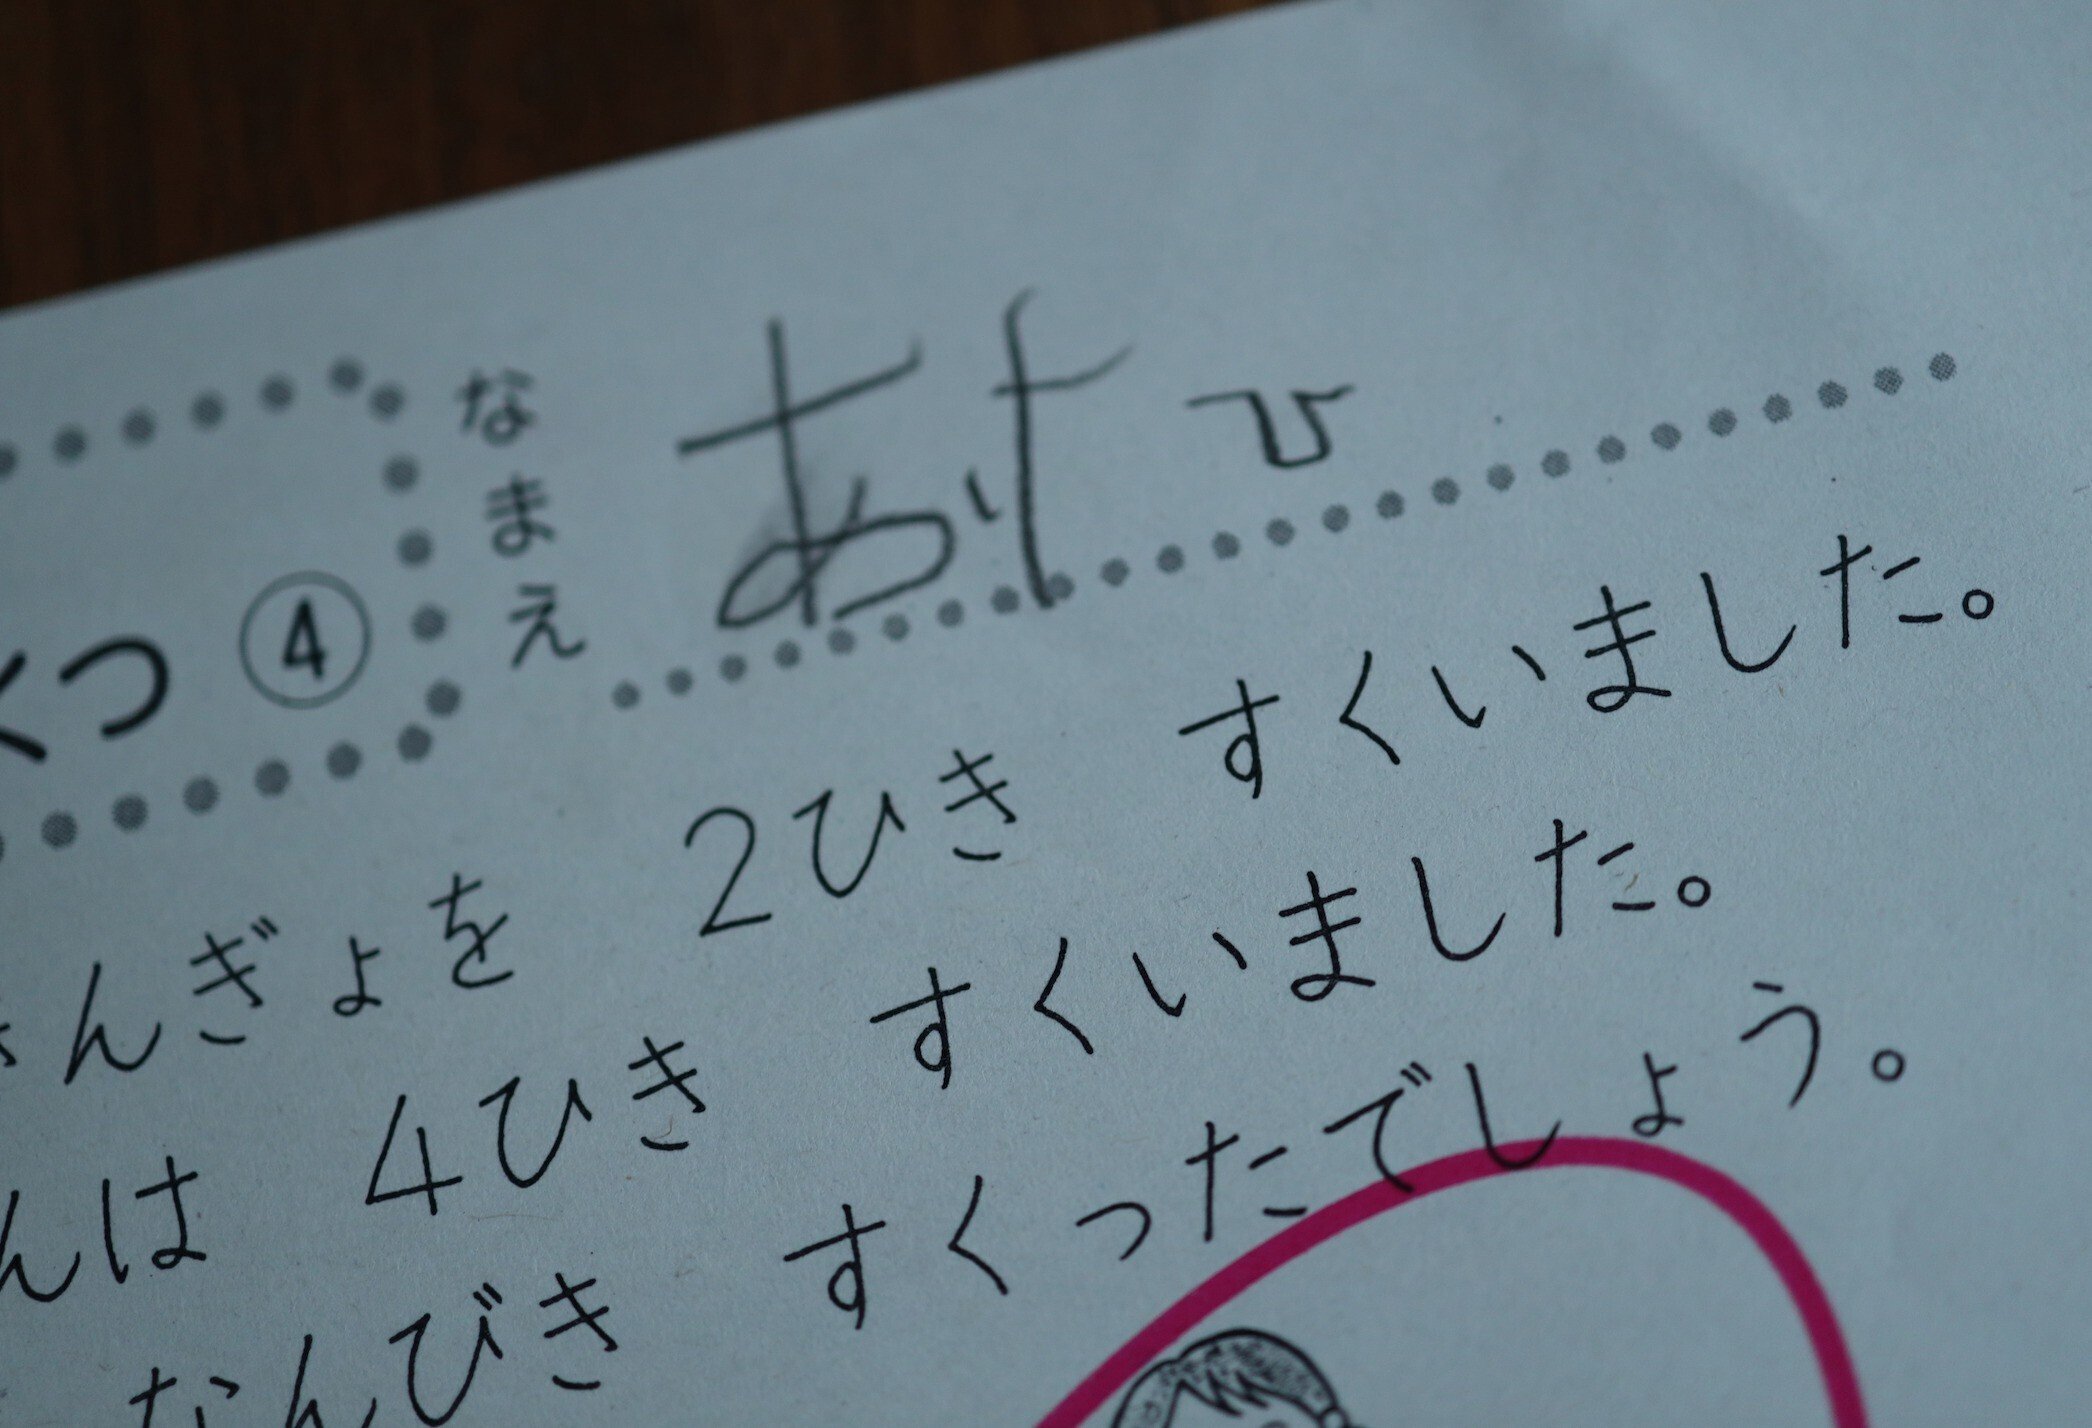 くつ ④
なまえ あけひ
きんぎょを 2ひき すくいました。
んは 4ひき すくいました。
なんびき すくったでしょう。